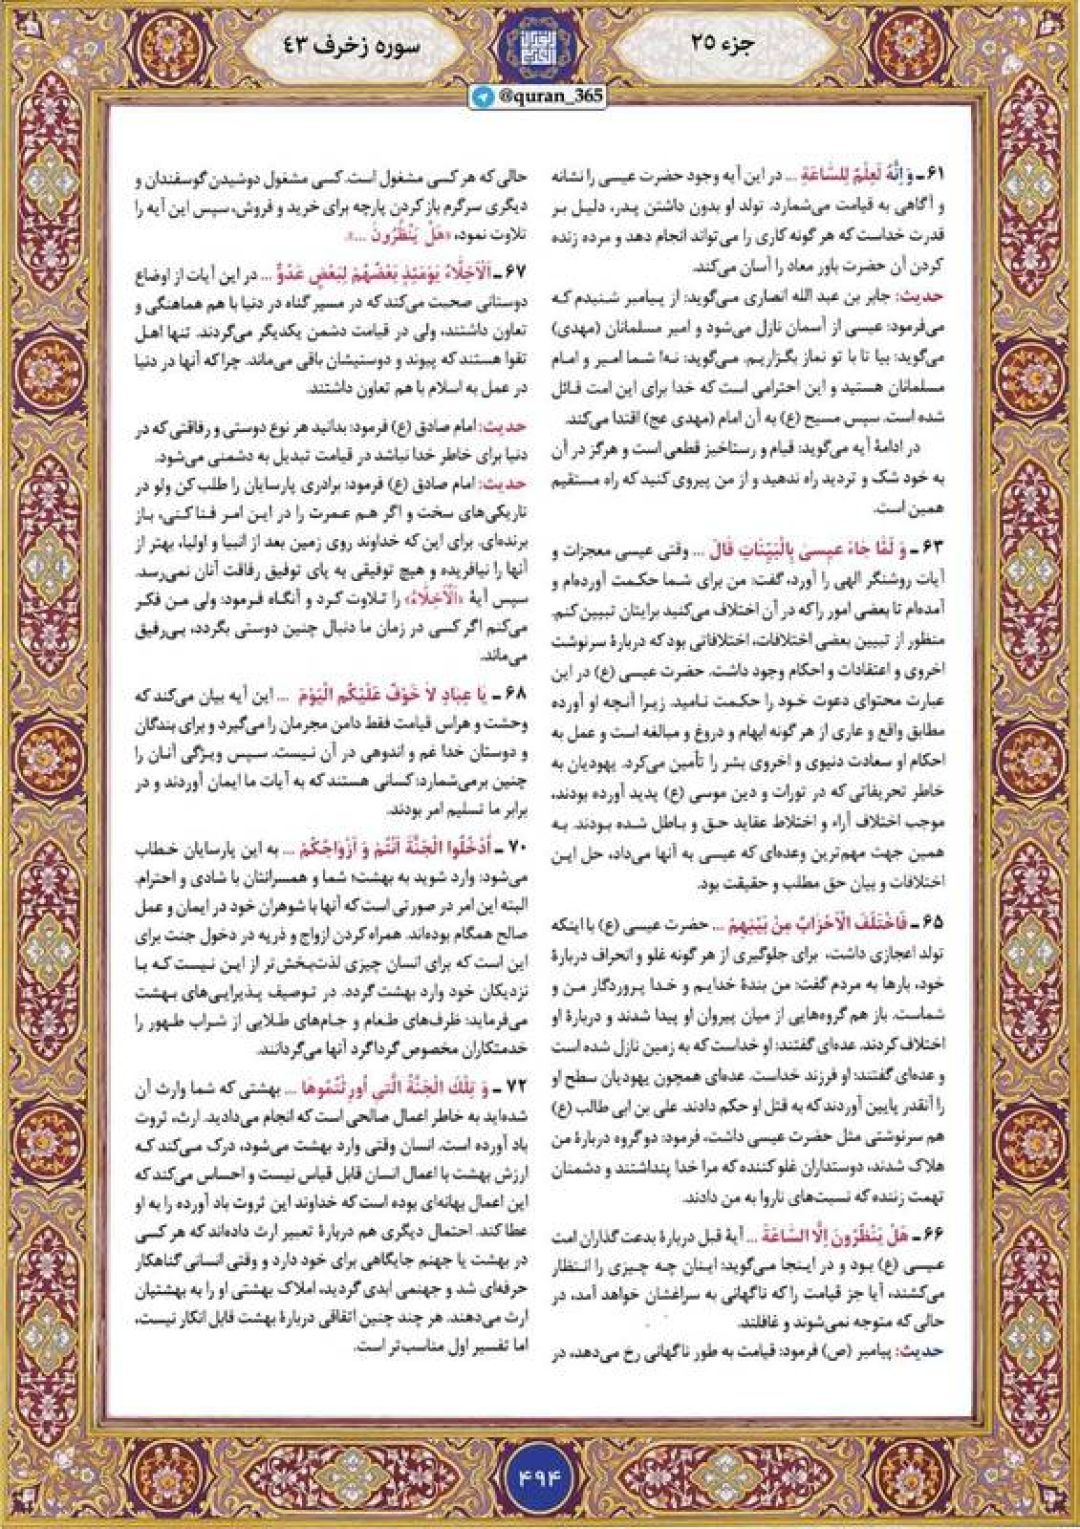 جزء ۲۵
سوره زخرف ۴۳
@quran_365
۶۱ـ وَ اِنَّهُ لَعِلْمٌ لِلسَّاعَةِ ... در این آیه وجود حضرت عیسی را نشانه
و آگاهی به قیامت می‌شمارد. تولد او بدون داشتن پدر، دلیل بر
قدرت خداست که هر گونه کاری را می‌تواند انجام دهد و مرده زنده
کردن آن حضرت باور معاد را آسان می‌کند.
حدیث: جابر بن عبد الله انصاری می‌گوید: از پیامبر شنیدم که
می‌فرمود: عیسی از آسمان نازل می‌شود و امیر مسلمانان (مهدی)
می‌گوید: بیا تا با تو نماز بگزاریم. می‌گوید: نه! شما امیر و امام
مسلمانان هستید و این احترامی است که خدا برای این امت قائل
شده است. سپس مسیح (ع) به آن امام (مهدی عج) اقتدا می‌کند.
در ادامهٔ آیه می‌گوید: قیام و رستاخیز قطعی است و هرگز در آن
به خود شک و تردید راه ندهید و از من پیروی کنید که راه مستقیم
همین است.
۶۳ـ وَ لَمَّا جَاءَ عِیسیٰ بِالْبَیِّنَاتِ قَالَ ... وقتی عیسی معجزات و
آیات روشنگر الهی را آورد، گفت: من برای شما حکمت آورده‌ام و
آمده‌ام تا بعضی امور را که در آن اختلاف می‌کنید برایتان تبیین کنم.
منظور از تبیین بعضی اختلافات، اختلافاتی بود که دربارهٔ سرنوشت
اخروی و اعتقادات و احکام وجود داشت. حضرت عیسی (ع) در این
عبارت محتوای دعوت خود را حکمت نامید. زیرا آنچه او آورده
مطابق واقع و عاری از هر گونه ابهام و دروغ و مبالغه است و عمل به
احکام او سعادت دنیوی و اخروی بشر را تأمین می‌کرد. یهودیان به
خاطر تحریفاتی که در تورات و دین موسی (ع) پدید آورده بودند،
موجب اختلاف آراء و اختلاط عقاید حق و باطل شده بودند. به
همین جهت مهم‌ترین وعده‌ای که عیسی به آنها می‌داد، حل این
اختلافات و بیان حق مطلب و حقیقت بود.
۶۵ـ فَاخْتَلَفَ الْاَحْزَابُ مِنْ بَیْنِهِمْ ... حضرت عیسی (ع) با اینکه
تولد اعجازی داشت، برای جلوگیری از هر گونه غلو و انحراف دربارهٔ
خود، بارها به مردم گفت: من بندهٔ خدایم و خدا پروردگار من و
شماست. باز هم گروه‌هایی از میان پیروان او پیدا شدند و دربارهٔ او
اختلاف کردند. عده‌ای گفتند: او خداست که به زمین نازل شده است
و عده‌ای گفتند: او فرزند خداست. عده‌ای همچون یهودیان سطح او
را آنقدر پایین آوردند که به قتل او حکم دادند. علی بن ابی طالب (ع)
هم سرنوشتی مثل حضرت عیسی داشت، فرمود: دو گروه دربارهٔ من
هلاک شدند، دوستداران غلو کننده که مرا خدا پنداشتند و دشمنان
تهمت زننده که نسبت‌های ناروا به من دادند.
۶۶ـ هَلْ یَنْظُرُونَ اِلَّا السَّاعَةَ ... آیهٔ قبل دربارهٔ بدعت گذاران امت
عیسی (ع) بود و در اینجا می‌گوید: اینان چه چیزی را انتظار
می‌کشند، آیا جز قیامت را که ناگهانی به سراغشان خواهد آمد، در
حالی که متوجه نمی‌شوند و غافلند.
حدیث: پیامبر (ص) فرمود: قیامت به طور ناگهانی رخ می‌دهد، در
حالی که هر کسی مشغول است. کسی مشغول دوشیدن گوسفندان و
دیگری سرگرم باز کردن پارچه برای خرید و فروش، سپس این آیه را
تلاوت نمود، «هَلْ یَنْظُرُونَ ...».
۶۷ـ اَلْاَخِلَّاءُ یَوْمَئِذٍ بَعْضُهُمْ لِبَعْضٍ عَدُوٌّ ... در این آیات از اوضاع
دوستانی صحبت می‌کند که در مسیر گناه در دنیا با هم هماهنگی و
تعاون داشتند، ولی در قیامت دشمن یکدیگر می‌گردند. تنها اهل
تقوا هستند که پیوند و دوستیشان باقی می‌ماند. چرا که آنها در دنیا
در عمل به اسلام با هم تعاون داشتند.
حدیث: امام صادق (ع) فرمود: بدانید هر نوع دوستی و رفاقتی که در
دنیا برای خاطر خدا نباشد در قیامت تبدیل به دشمنی می‌شود.
حدیث: امام صادق (ع) فرمود: برادری پارسایان را طلب کن ولو در
تاریکی‌های سخت و اگر هم عمرت را در این امر فنا کنی، باز
برنده‌ای. برای این که خداوند روی زمین بعد از انبیا و اولیا، بهتر از
آنها را نیافریده و هیچ توفیقی به پای توفیق رفاقت آنان نمی‌رسد.
سپس آیهٔ «اَلْاَخِلَّاءُ» را تلاوت کرد و آنگاه فرمود: ولی من فکر
می‌کنم اگر کسی در زمان ما دنبال چنین دوستی بگردد، بی‌رفیق
می‌ماند.
۶۸ـ یَا عِبَادِ لَا خَوْفٌ عَلَیْکُمُ الْیَوْمَ ... این آیه بیان می‌کند که
وحشت و هراس قیامت فقط دامن مجرمان را می‌گیرد و برای بندگان
و دوستان خدا غم و اندوهی در آن نیست. سپس ویژگی آنان را
چنین برمی‌شمارد: کسانی هستند که به آیات ما ایمان آوردند و در
برابر ما تسلیم امر بودند.
۷۰ـ اُدْخُلُوا الْجَنَّةَ اَنْتُمْ وَ اَزْوَاجُکُمْ ... به این پارسایان خطاب
می‌شود: وارد شوید به بهشت؛ شما و همسرانتان با شادی و احترام.
البته این امر در صورتی است که آنها با شوهران خود در ایمان و عمل
صالح همگام بوده‌اند. همراه کردن ازواج و ذریه در دخول جنت برای
این است که برای انسان چیزی لذت‌بخش‌تر از این نیست که با
نزدیکان خود وارد بهشت گردد. در توصیف پذیرایی‌های بهشت
می‌فرماید: ظرف‌های طعام و جام‌های طلایی از شراب طهور را
خدمتکاران مخصوص گرداگرد آنها می‌گردانند.
۷۲ـ وَ تِلْکَ الْجَنَّةُ الَّتِی اُورِثْتُمُوهَا ... بهشتی که شما وارث آن
شده‌اید به خاطر اعمال صالحی است که انجام می‌دادید. ارث، ثروت
باد آورده است. انسان وقتی وارد بهشت می‌شود، درک می‌کند که
ارزش بهشت با اعمال انسان قابل قیاس نیست و احساس می‌کند که
این اعمال بهانه‌ای بوده است که خداوند این ثروت باد آورده را به او
عطا کند. احتمال دیگری هم دربارهٔ تعبیر ارث داده‌اند که هر کسی
در بهشت یا جهنم جایگاهی برای خود دارد و وقتی انسانی گناهکار
حرفه‌ای شد و جهنمی ابدی گردید، املاک بهشتی او را به بهشتیان
ارث می‌دهند. هر چند چنین اتفاقی دربارهٔ بهشت قابل انکار نیست،
اما تفسیر اول مناسب‌تر است.
۴۹۴